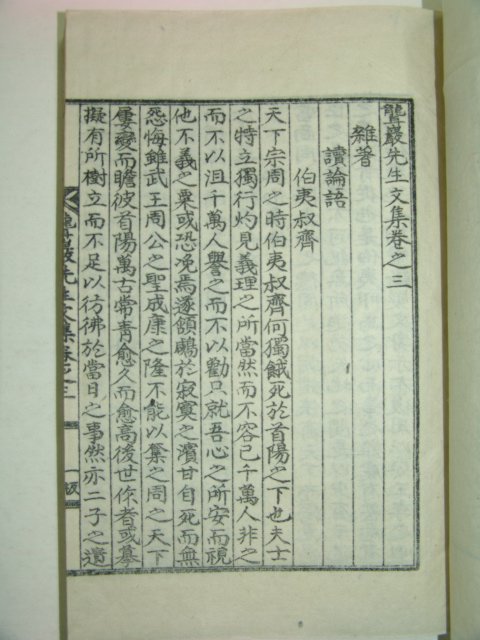 聾巖先生文集卷之三
雜著
讀論語
伯夷叔齊
天下宗周之時伯夷叔齊何獨餓死於首陽之下也夫士
之特立獨行灼見義理之所當然而不容已千萬人非之
而不以沮千萬人譽之而不以勸只就吾心之所安而視
他不義之粟或恐浼焉遂顑顑於寂寞之濱甘自死而無
怨悔雖武王周公之聖成康之隆不能以累之周之天下
屢變而瞻彼首陽萬古常靑愈久而愈高後世作者或摹
擬有所樹立而不足以彷彿於當日之事然亦二子之遺
聾巖先生文集卷之三